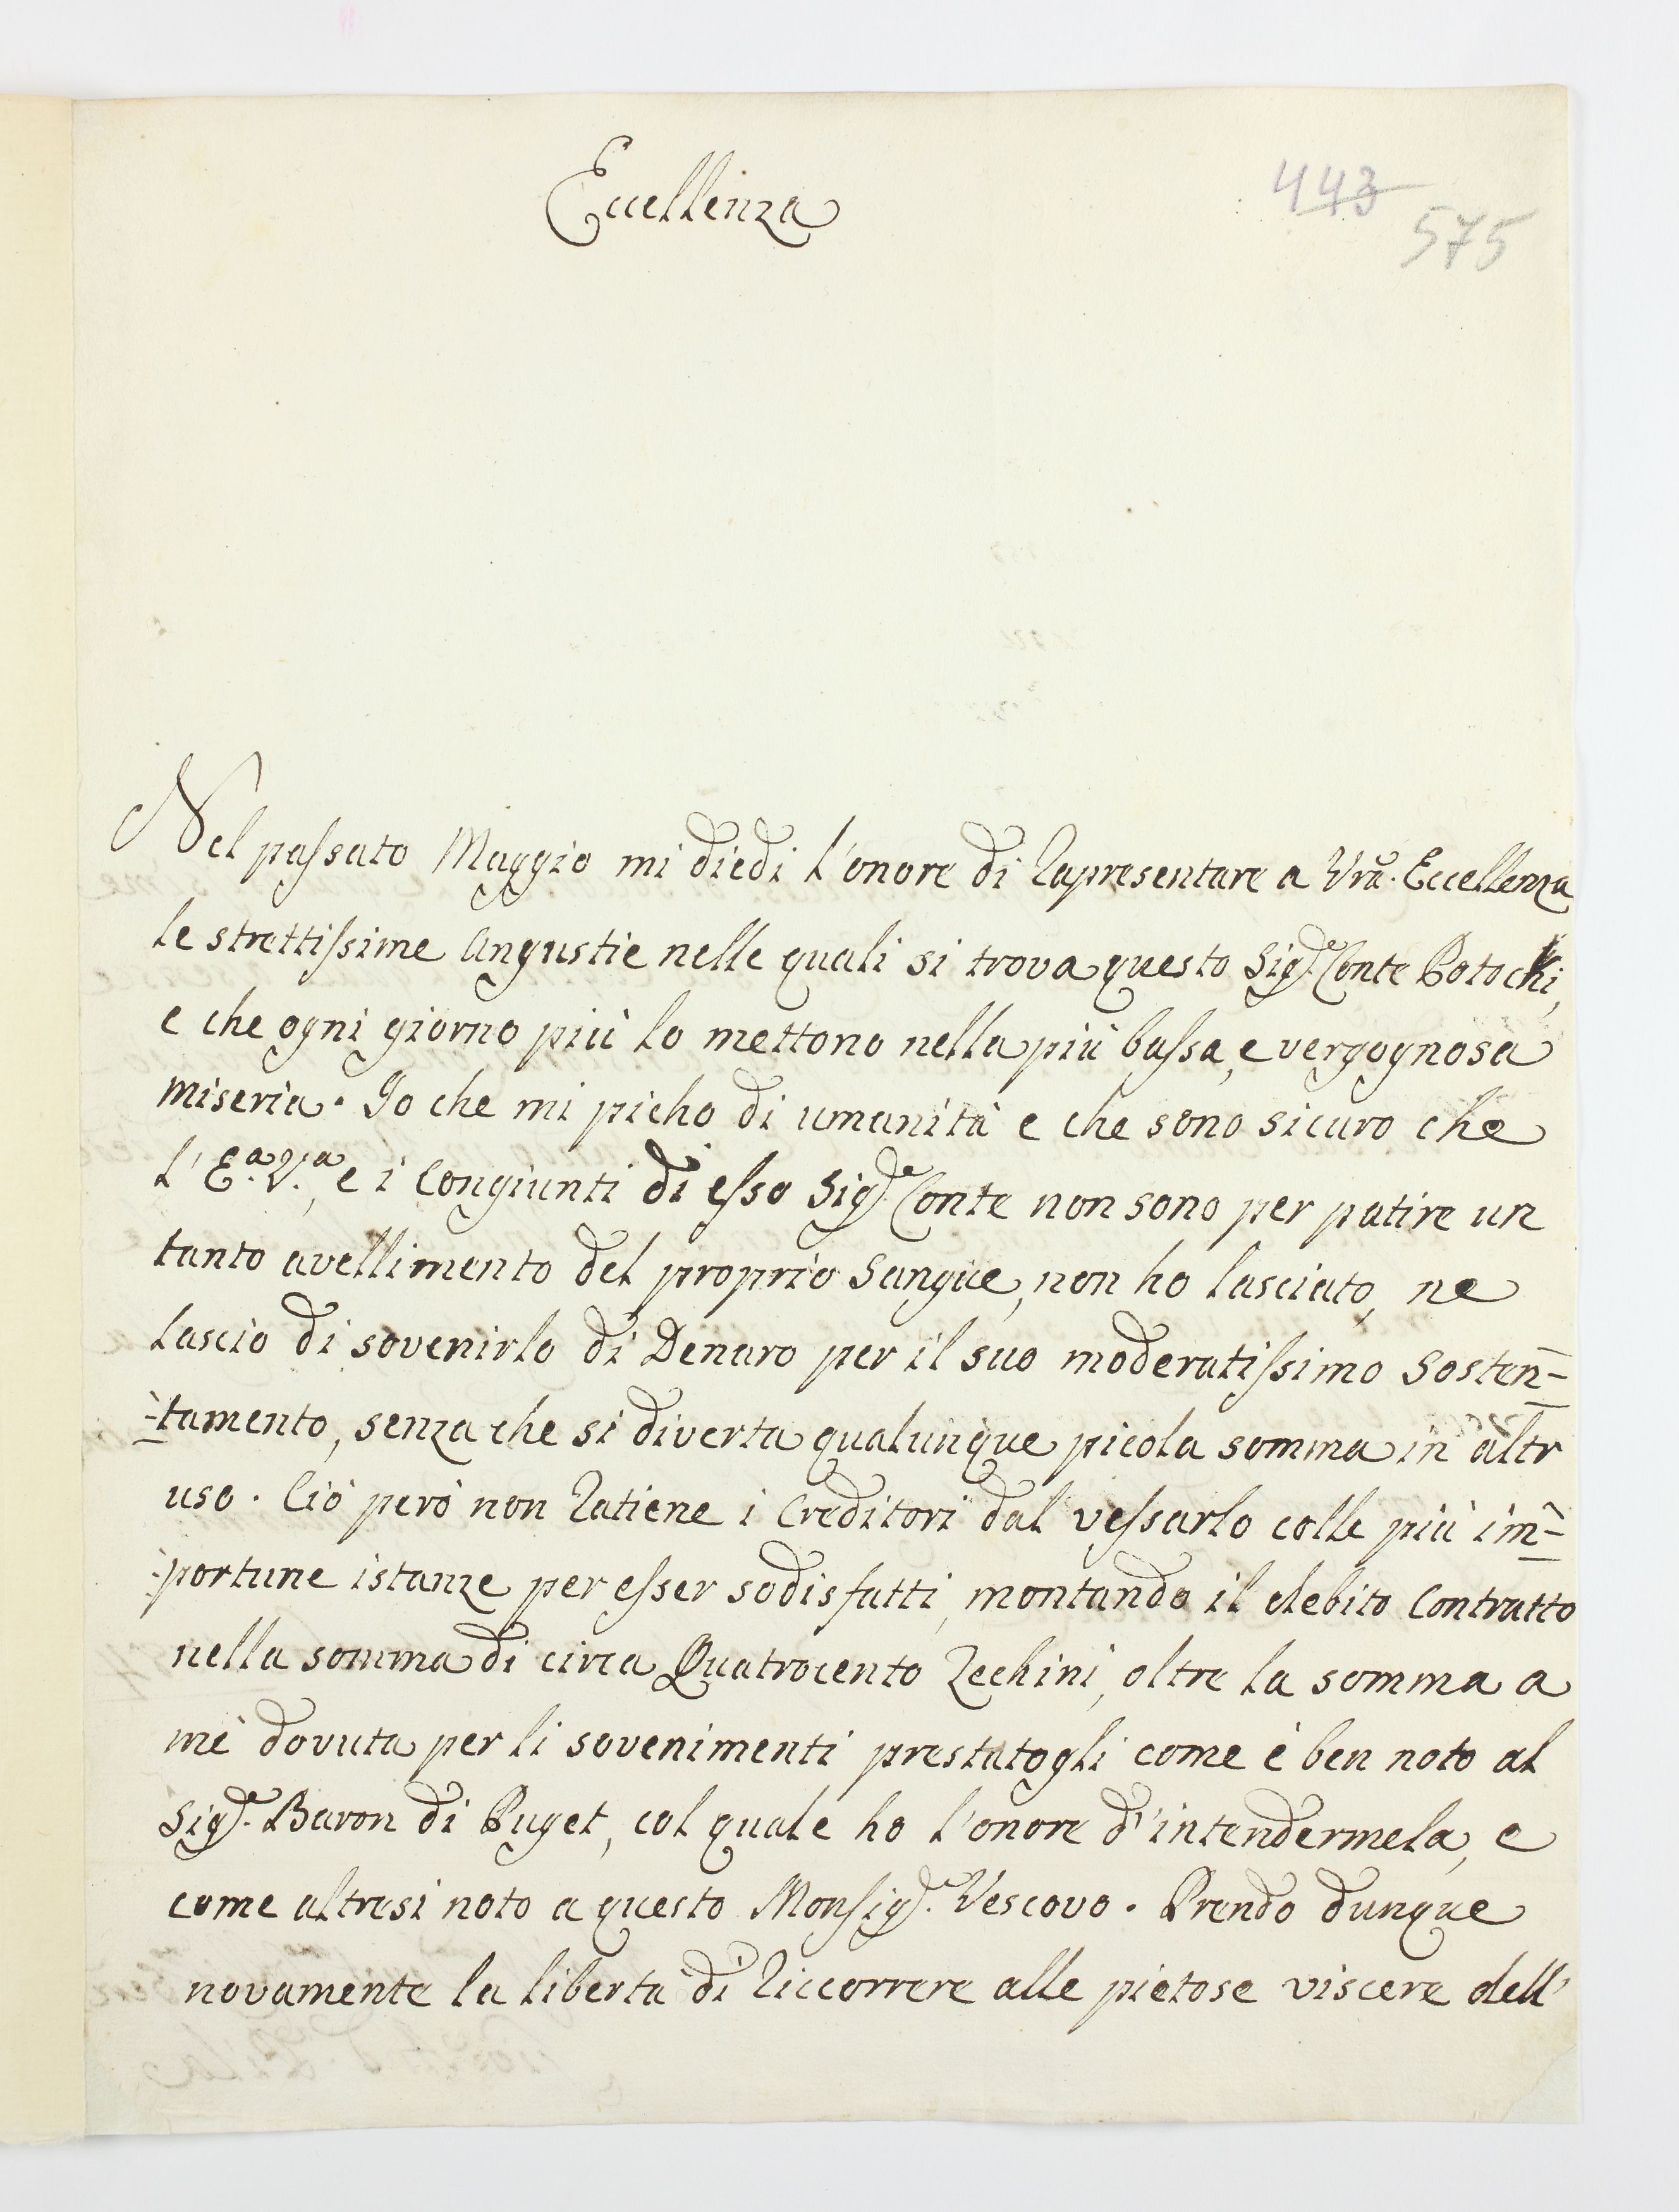 Eccellenza
443
575
Nel passato Maggio mi diedi l'onore di rapresentare a Vrã. Eccellenza
le strettissime angustie nelle quali si trova questo Sig.e Conte Potochi,
e che ogni giorno più lo mettono nella più bassa, e vergognosa
miseria. Io che mi picho di umanità e che sono sicuro che
l'E.a V.a, e i Congiunti di esso Sig.e Conte non sono per patire un
tanto avellimento del proprio Sangue, non ho lasciato, ne
lascio di sovenirlo di Denaro per il suo moderatissimo Sosten=
=tamento, senza che si diverta qualunque picola somma in altr
uso. Ciò però non ratiene i Creditori dal vessarlo colle più im=
=portune istanze per esser sodisfatti, montando il debito Contratto
nella somma di circa Quatrocento Zechini, oltre la somma a
mè dovuta per li sovenimenti prestatogli come è ben noto al
Sig.e Baron di Puget, col quale ho l'onore d'intendermela, e
come altresi noto a questo Monsig.e Vescovo. Prendo dunque
novamente la libertà di riccorrere alle pietose viscere dell'